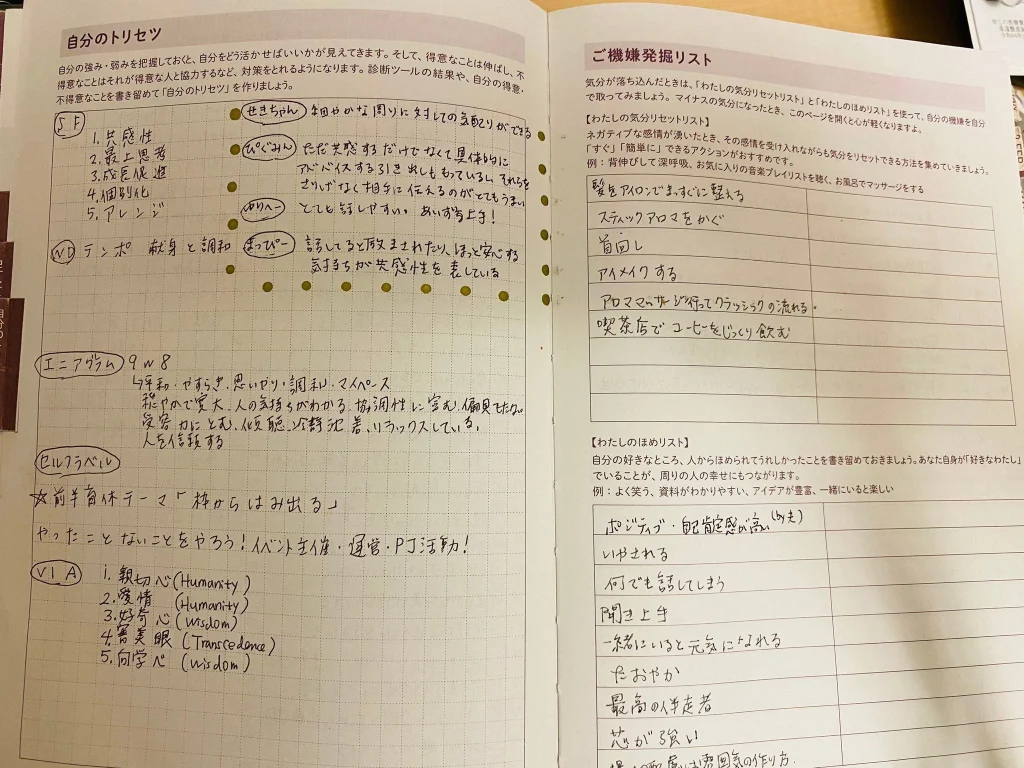 自分のトリセツ
自分の強み・弱みを把握しておくと、自分をどう活かせばいいかが見えてきます。そして、得意なことは伸ばし、不
得意なことはそれが得意な人と協力するなど、対策をとれるようになります。診断ツールの結果や、自分の得意・
不得意なことを書き留めて「自分のトリセツ」を作りましょう。
SF
1. 共感性
2. 最上思考
3. 成長促進
4. 個別化
5. アレンジ
せきちゃん 細やかな周りに対しての気配りができる
ぴぐみん ただ共感するだけでなくて具体的に
アドバイスする引き出しももっているし、それらを
さりげなく相手に伝えるのがとてもうまい
ゆりへー とても話しやすい。あいずち上手!
まっぴー 話してると励まされたり、ほっと安心する
気持ちが共感性を表している
WD テンポ 献身と調和
エニアグラム 9w8
↳平和・やすらぎ・思いやり・調和・マイペース
穏やかで寛大、人の気持ちがわかる、協調性に富む、偏見もたない
受容力にとむ、傾聴、冷静沈着、リラックスしている、
人を信頼する
セルフラベル
☆前半育休テーマ「枠からはみ出る」
やったことないことをやろう!イベント主催・運営・PJ活動!
VIA
1. 親切心(Humanity)
2. 愛情 (Humanity)
3. 好奇心(wisdom)
4. 審美眼(Transcedence)
5. 向学心(wisdom)
ご機嫌発掘リスト
気分が落ち込んだときは、「わたしの気分リセットリスト」と「わたしのほめリスト」を使って、自分の機嫌を自分
で取ってみましょう。マイナスの気分になったとき、このページを開くと心が軽くなりますよ。
【わたしの気分リセットリスト】
ネガティブな感情が湧いたとき、その感情を受け入れながらも気分をリセットできる方法を集めていきましょう。
「すぐ」「簡単に」できるアクションがおすすめです。
例：背伸びして深呼吸、お気に入りの音楽プレイリストを聴く、お風呂でマッサージをする
髪をアイロンでまっすぐに整える
スティックアロマをかぐ
首回し
アイメイクする
アロママッサージ行ってクラッシックの流れる
喫茶店でコーヒーをじっくり飲む
【わたしのほめリスト】
自分の好きなところ、人からほめられてうれしかったことを書き留めておきましょう。あなた自身が「好きなわたし」
でいることが、周りの人の幸せにもつながります。
例：よく笑う、資料がわかりやすい、アイデアが豊富、一緒にいると楽しい
ポジティブ・自己肯定感が高い(by夫)
いやされる
何でも話してしまう
聞き上手
一緒にいると元気になれる
たおやか
最高の伴走者
芯が強い
雰囲気の作り方